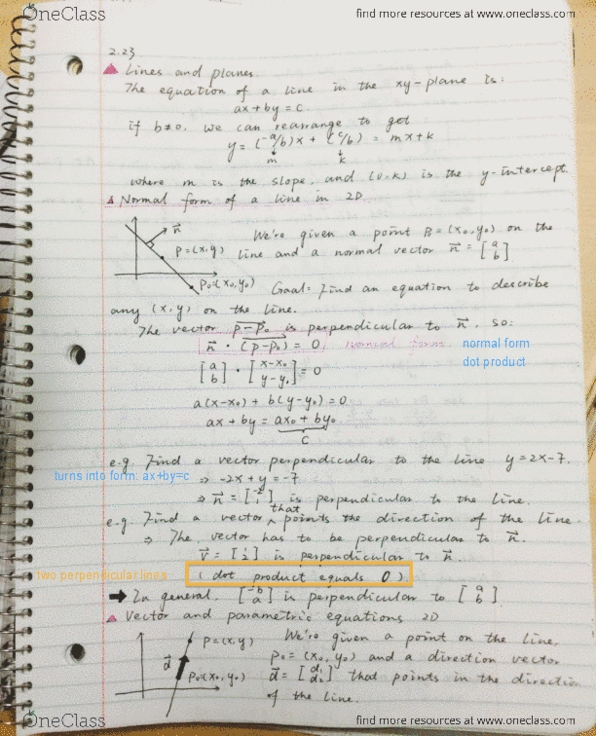 OneClass
find more resources at www.oneclass.com
2.23
Lines and planes.
The equation of a line in the xy-plane is:
ax+by=c.
if b≠0, we can rearrange to get
y = (-a/b)x + (c/b) = mx+k
m k
where m is the slope, and (0,k) is the y-intercept.
Normal form of a line in 2D.
n⃗
P=(x,y)
P₀=(x₀,y₀)
We're given a point P₀=(x₀,y₀) on the
line and a normal vector n⃗ = [a b]
Goal: Find an equation to describe
any (x,y) on the line.
The vector p-p₀ is perpendicular to n⃗. so:
n⃗ · (p-p₀) = 0 normal form.
normal form
dot product
[a b] · [x-x₀ y-y₀] = 0
a(x-x₀) + b(y-y₀)=0
ax + by = ax₀ + by₀
C
e.g. Find a vector perpendicular to the line y=2x-7.
turns into form: ax+by=c
⇒ -2x + y = -7
⇒ n⃗ = [-2 1] is perpendicular to the line.
e.g. Find a vector that points the direction of the line.
⇒ The vector has to be perpendicular to n⃗.
v⃗ = [1 2] is perpendicular to n⃗.
two perpendicular lines
(dot product equals 0)
In general, [-b a] is perpendicular to [a b]
Vector and parametric equations 2D
P=(x,y)
d⃗
P₀=(x₀,y₀)
We're given a point on the line,
P₀=(x₀,y₀) and a direction vector
d⃗ = [d₁ d₂] that points in the direction
of the line.
OneClass
find more resources at www.oneclass.com